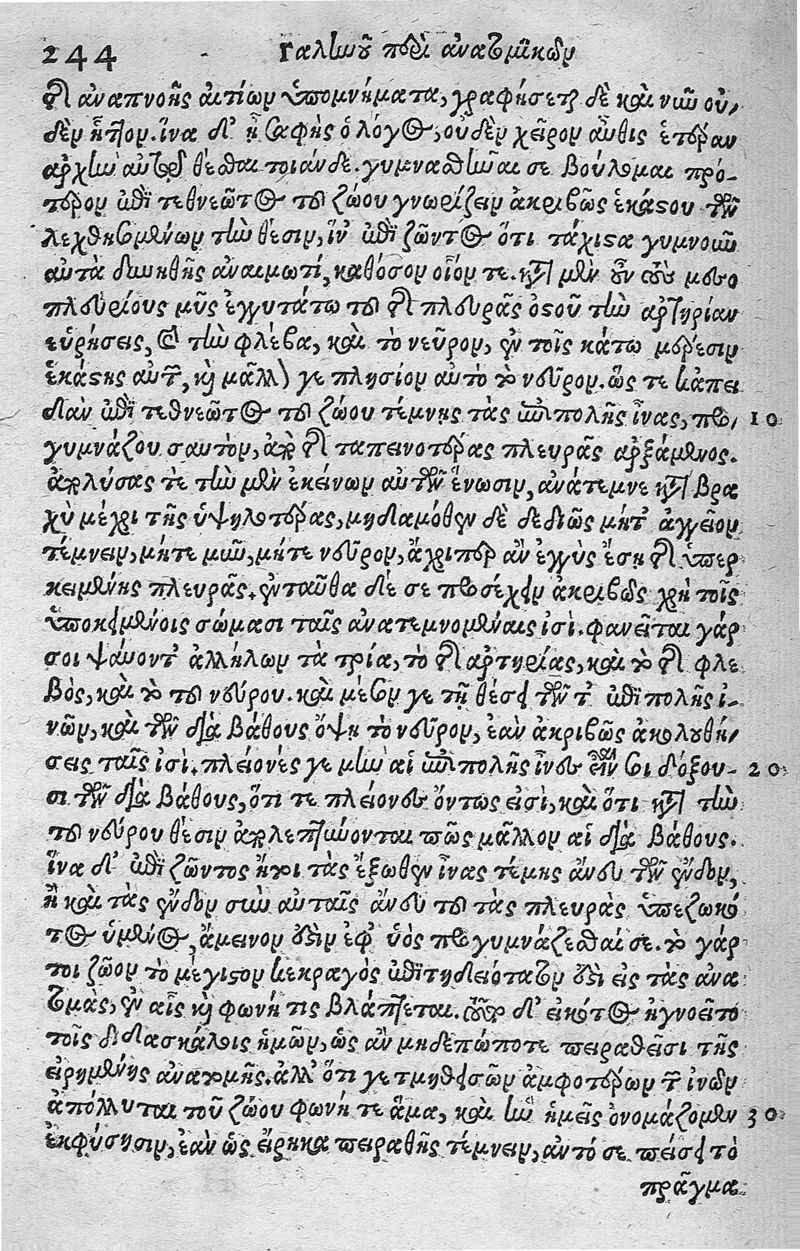 244 Γαληνοῦ περὶ ἀνατομικῶν
τῆς ἀναπνοῆς αἰτίων ὑπομνήματα, γραφήσεται δὲ καὶ νῦν οὐ-
δὲν ἧττον. ἵνα δ' ᾖ σαφὴς ὁ λόγος, οὐδὲν χεῖρον αὖθις ἑτέραν
ἀρχὴν αὐτοῦ θέσθαι τοιάνδε. γυμνασθῆναι σε βούλομαι πρό-
τερον ἐπὶ τεθνεῶτος τοῦ ζώου γνωρίζειν ἀκριβῶς ἑκάστου τῶν
λεχθησομένων τὴν θέσιν, ἵν' ἐπὶ ζῶντος ὅτι τάχιστα γυμνοῦν
αὐτὰ δυνηθῇς ἀναιμωτί, καθόσον οἷόν τε. κατὰ μὲν οὖν τοὺς μεσο
πλευρίους μῦς ἐγγυτάτω τοῦ τῆς πλευρᾶς ὀστοῦ τὴν ἀρτηρίαν
εὑρήσεις, καὶ τὴν φλέβα, καὶ τὸ νεῦρον, ἐν τοῖς κάτω μέρεσιν
ἑκάστης αὐτῶν, καὶ μᾶλλόν γε πλησίον αὐτὸ τὸ νεῦρον. ὥς τε κἀπει
δὰν ἐπὶ τεθνεῶτος τοῦ ζώου τέμνῃς τὰς ἐπιπολῆς ἶνας, προ- 10
γυμνάζου σαυτὸν, ἀπὸ τῆς ταπεινοτέρας πλευρᾶς ἀρξάμενος.
ἀπολύσας τε τὴν μὲν ἐκείνων αὐτῶν ἕνωσιν, ἀνάτεμνε κατὰ βρα
χὺ μέχρι τῆς ὑψηλοτέρας, μηδαμόθεν δὲ δεδιὼς μήτ' ἀγγεῖον
τέμνειν, μήτε μῦν, μήτε νεῦρον, ἄχριπερ ἂν ἐγγὺς ἔσῃ τῆς ὑπερ
κειμένης πλευρᾶς. ἐνταῦθα δέ σε προσέχειν ἀκριβῶς χρὴ τοῖς
ὑποκειμένοις σώμασι ταῖς ἀνατεμνομέναις ἰσί. φανεῖται γάρ
σοι ψάυοντ' ἀλλήλων τὰ τρία, τὸ τῆς ἀρτηρίας, καὶ τὸ τῆς φλε
βὸς, καὶ τὸ τοῦ νεύρου. καὶ μέσον γε τῇ θέσει τῶν τ' ἐπιπολῆς ἰ-
νῶν, καὶ τῶν διὰ βάθους ὄψῃ τὸ νεῦρον, ἐὰν ἀκριβῶς ἀκολουθή-
σεις ταῖς ἰσί. πλείονές γε μὴν αἱ ἐπιπολῆς ἶνες εἶναι σοι δόξου- 20
σι τῶν διὰ βάθους, ὅτι τε πλείονες ὄντως εἰσὶ, καὶ ὅτι κατὰ τὴν
τοῦ νεύρου θέσιν ἀπολεπτύνονται πῶς μᾶλλον αἱ διὰ βάθους.
ἵνα δ' ἐπὶ ζῶντος ἤτοι τὰς ἔξωθεν ἶνας τέμῃς ἄνευ τῶν ἔνδον,
ἢ καὶ τὰς ἔνδον σὺν αὐταῖς ἄνευ τοῦ τὰς πλευρὰς ὑπεζωκό
τος ὑμένος, ἄμεινον ἐστὶν ἐφ' ὑὸς προγυμνάζεσθαί σε. τὸ γάρ
τοι ζῶον τὸ μέγιστον κεκραγὸς ἐπιτηδειότατον ἐστὶ εἰς τὰς ἀνα
τομὰς, ἐν αἷς καὶ φωνή τις βλάπτεται. τοῦτο δ' εἰκότως ἠγνοεῖτο
τοῖς διδασκάλοις ἡμῶν, ὡς ἂν μηδεπώποτε πειραθεῖσι τῆς
εἰρημένης ἀνατομῆς. ἀλλ' ὅτι γε τμηθεισῶν ἀμφοτέρων τῶν ἰνῶν
ἀπόλλυται τοῦ ζώου φωνή τε ἅμα, καὶ ἣν ἡμεῖς ὀνομάζομεν 30
ἐκφύσησιν, ἐὰν ὡς εἴρηκα πειραθῇς τέμνειν, αὐτό σε πείσει τὸ
πρᾶγμα